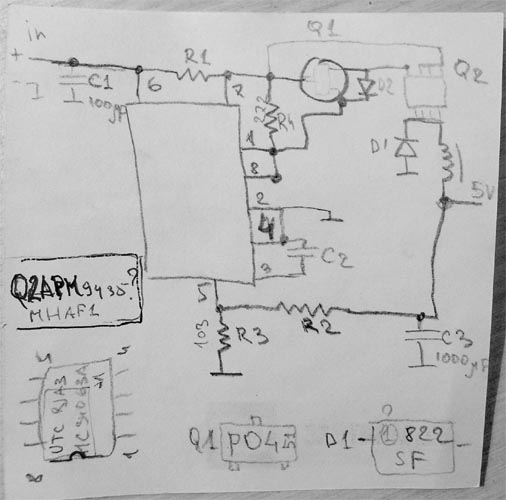 in
Q1
+
R1
Q2
-
C1
6
7
D2
100µF
222
R4
1
D1
8
2
5V
4
C2
3
Q2APM9435?
MHAF1
5
R2
103
R3
C3
1000µF
5
4
UTC
MC34063A
8
1
Q1
D1-
1822
SF